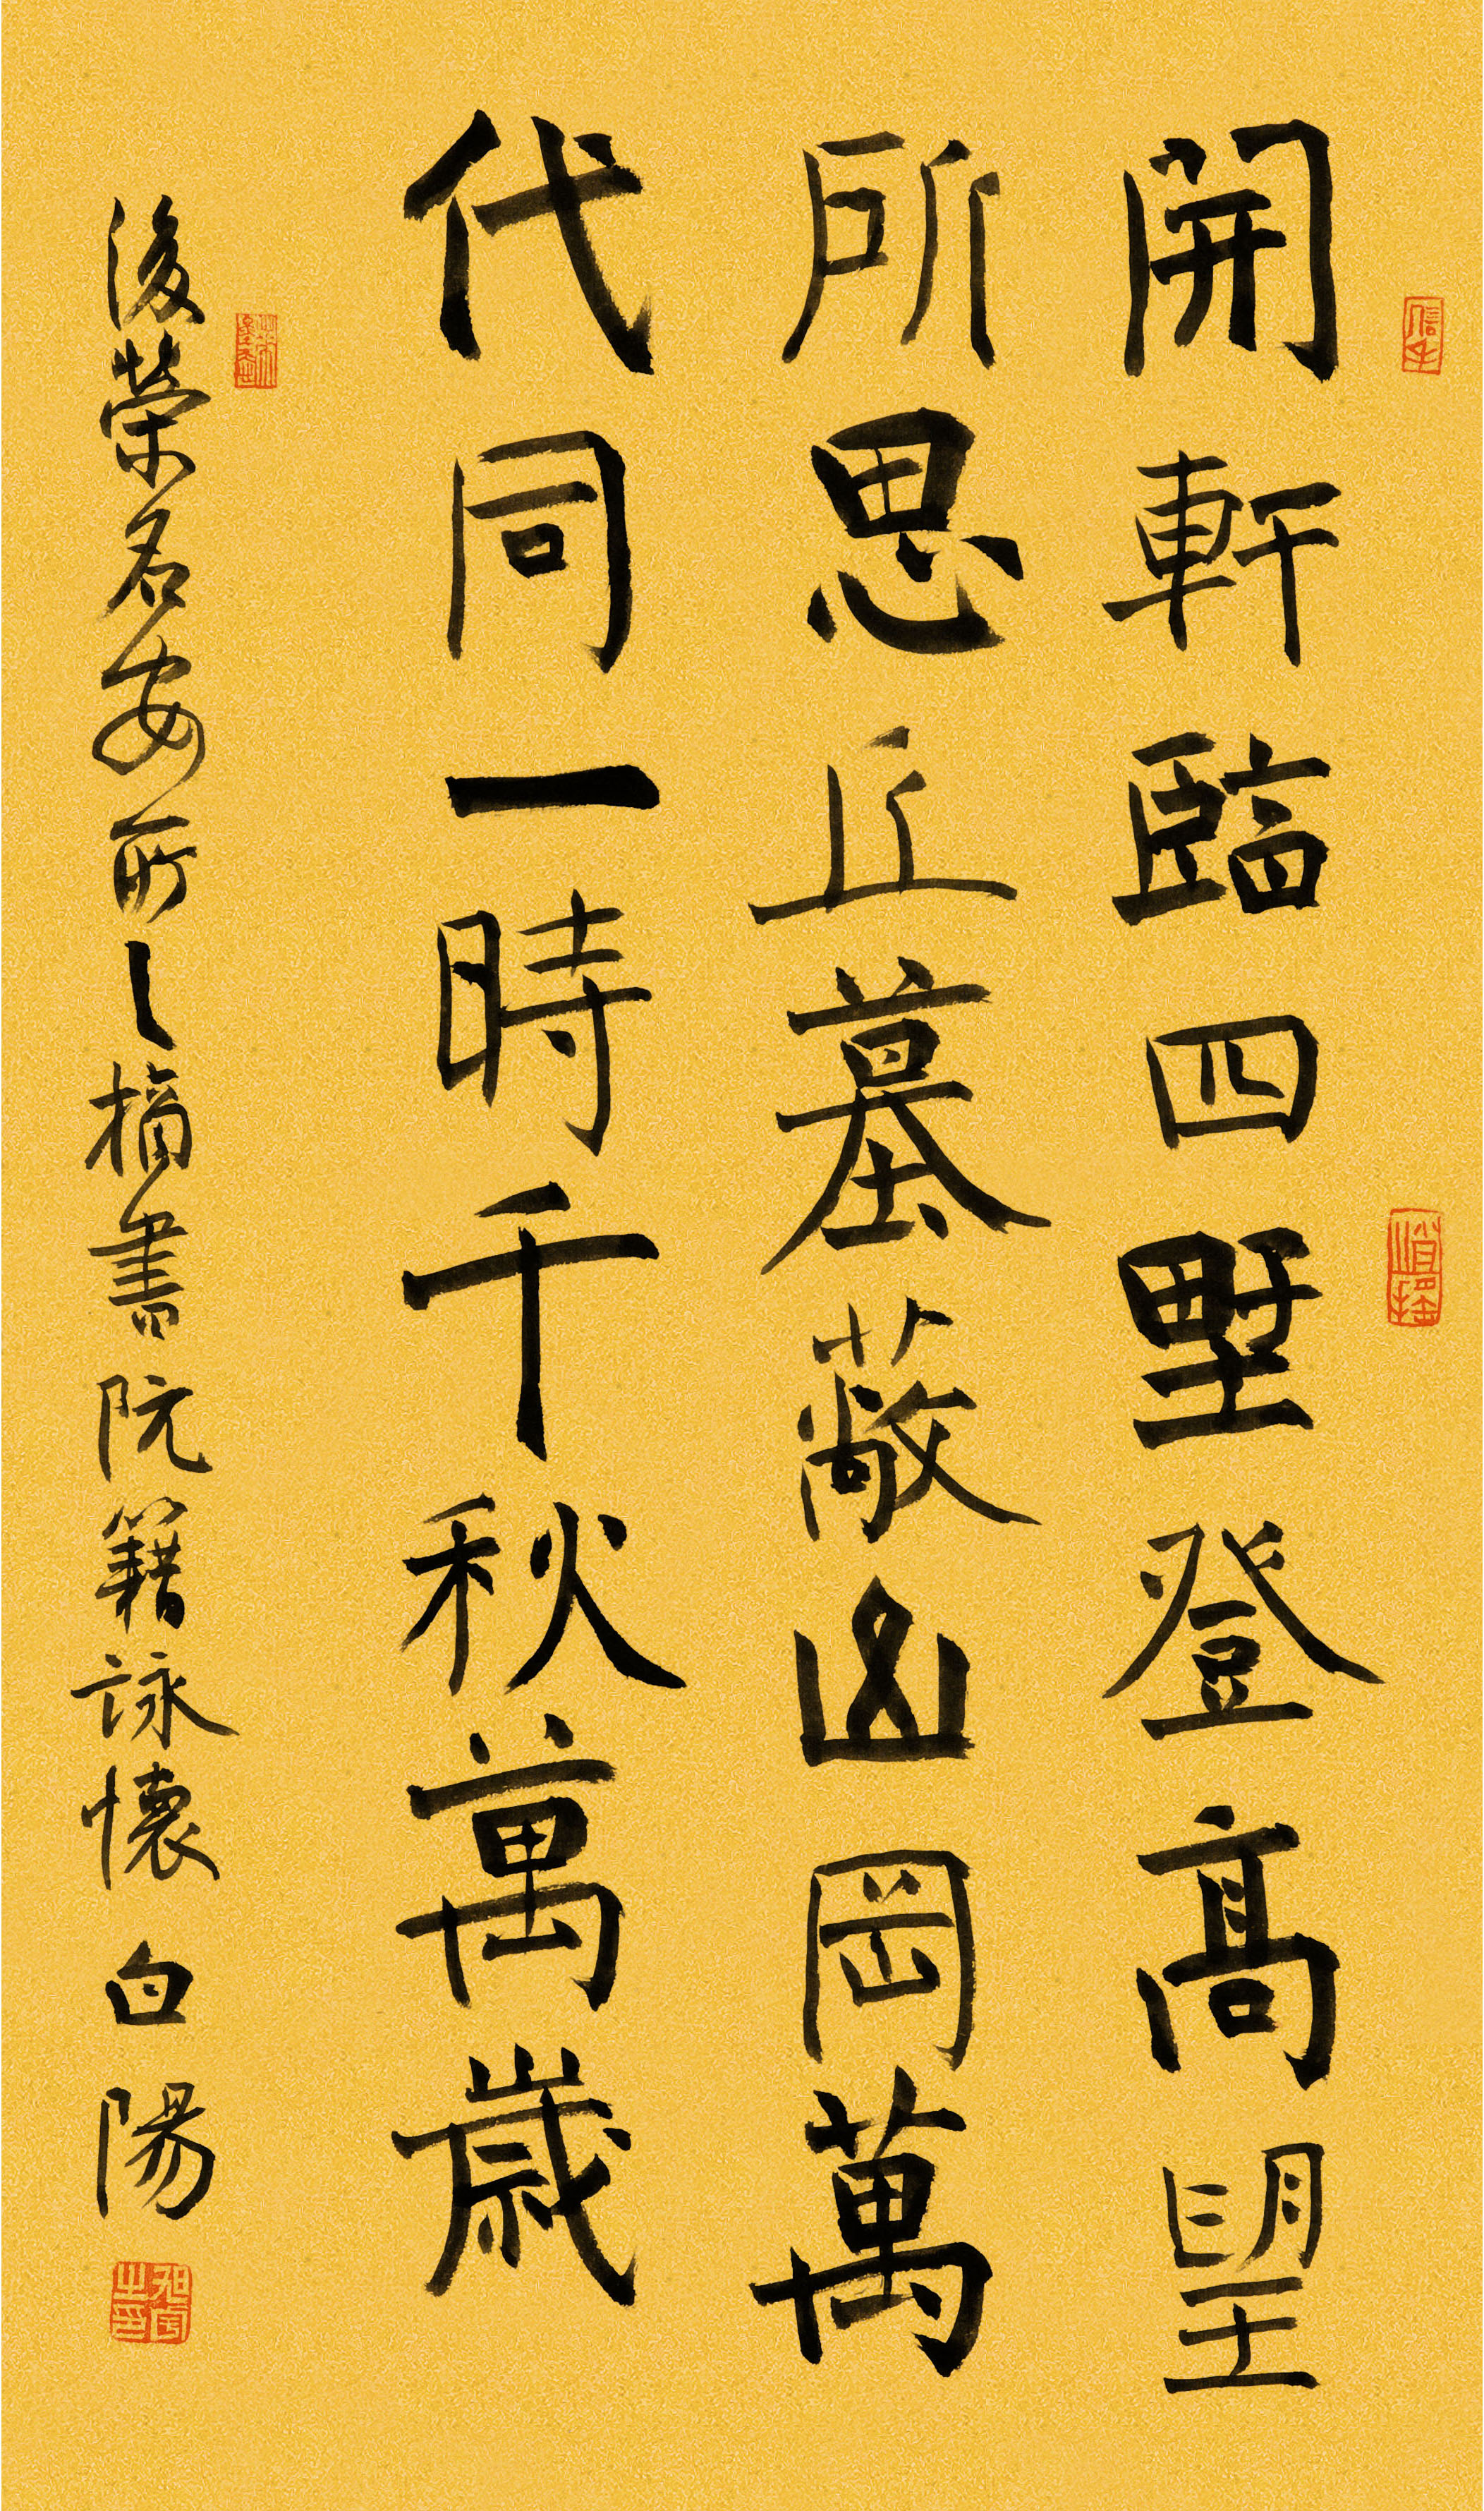 開軒臨四野登高望
所思丘墓蔽山岡萬
代同一時千秋萬歲
後榮名安所之摘書阮籍詠懷白陽